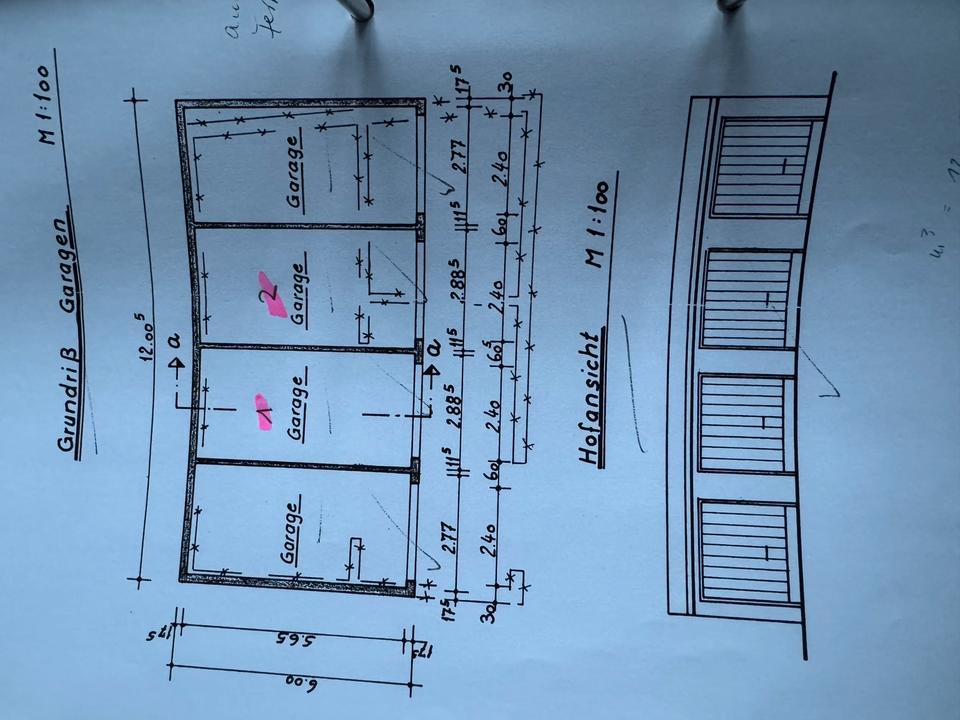 Grundriß Garagen M 1:100
12.00⁵
a
Garage
1 Garage
2 Garage
Garage
a
17⁵ 2.77 11⁵ 2.88⁵ 11⁵ 2.88⁵ 11⁵ 2.77 17⁵
30 2.40 60 2.40 60⁵ 2.40 60 2.40 30
17⁵ 5.65 17⁵
6.00
Hofansicht M 1:100